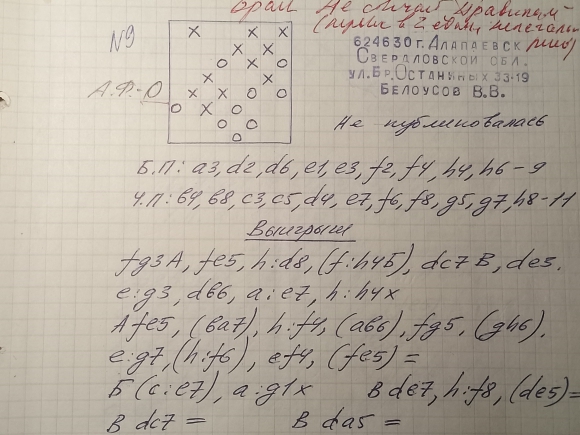 брали не счита правилам
(первые в 2
N9
624630 г. АЛАПАЕВСК
СВЕРДЛОВСКОЙ ОБЛ.
УЛ.БР.ОСТАНИНЫХ 33-19
БЕЛОУСОВ В.В.
А.Ф.-О
Не публиковалась
Б.П: a3, d2, d6, e1, e3, f2, f4, h4, h6 - 9
Ч.П: b4, b8, c3, c5, d4, e7, f6, f8, g5, g7, h8 - 11
Выигрыш
fg3 A, fe5, h:d8, (f:h4Б), dc7 B, de5,
e:g3, db6, a:e7, h:h4x
A fe5, (ba7), h:f4, (ab6), fg5, (gh6),
e:g7, (h:f6), ef4, (fe5) =
Б (c:e7), a:g1x B de7, h:f8, (de5)=
B dc7 = B da5 =